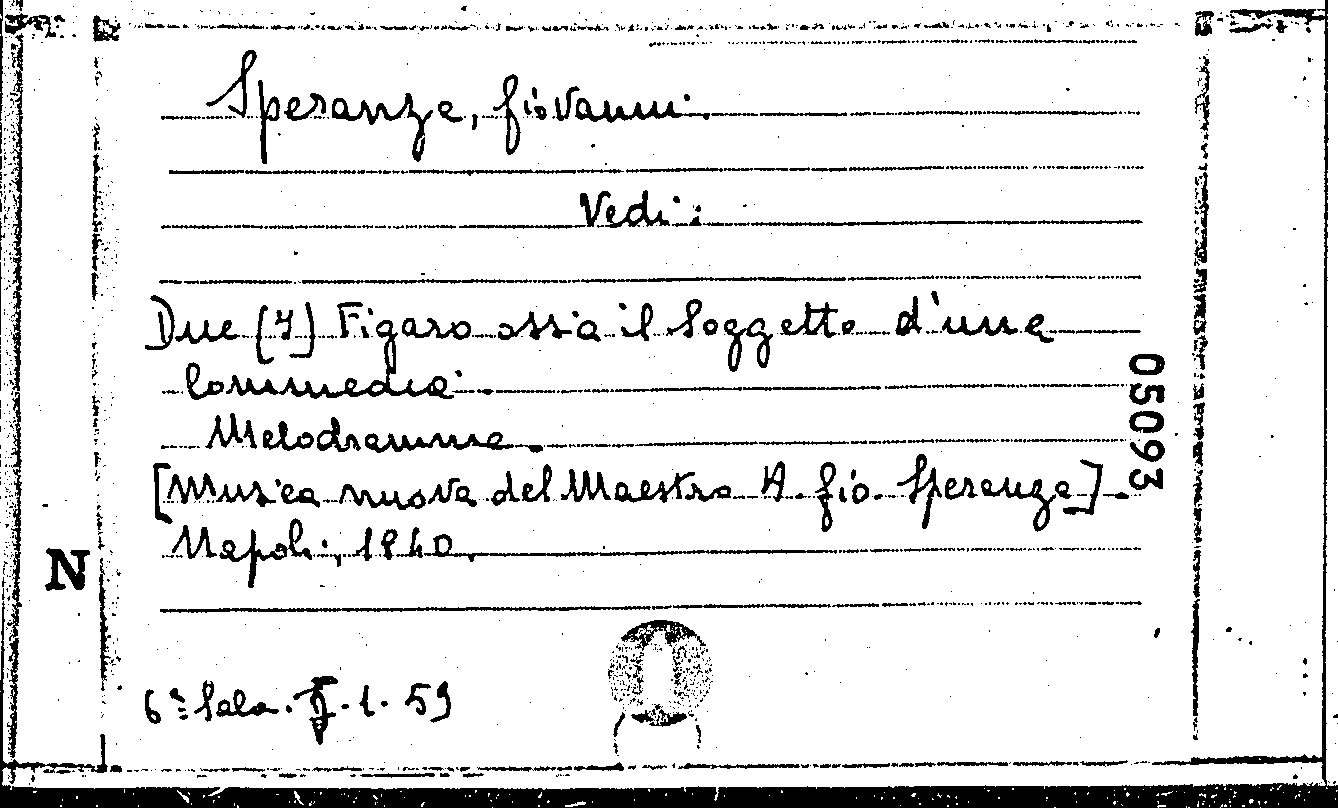 Speranza, Giovanni.
Vedi:
Due [I] Figaro ossia il Soggetto d'una
Commedia.
Melodramma.
[Musica nuova del Maestro A. Gio. Speranza].
Napoli, 1840.
6ª Sala. 1. 59
05093
N